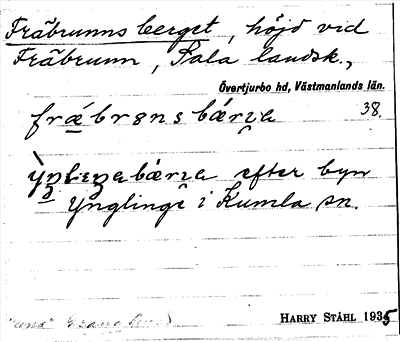 Fräbrunns berget, höjd vid
Fräbrunn, Sala landsk.,
Övertjurbo hd, Västmanlands län.
fræbrɘnsbárɿa 38.
ỳŋliŋabárɿa efter byn
Ynglinge i Kumla sn.
HARRY STÅHL 1935